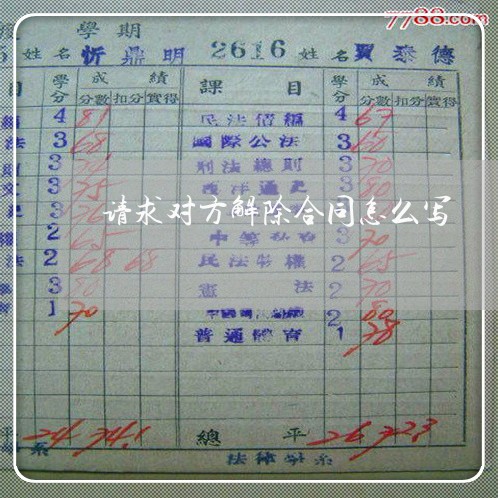 7788.com
學期
姓名 忻鼎明 2616 姓名 賈泰德
目 學分 成績 課目 學分 成績
分數 扣分 實得 分數 扣分 實得
4 81 民法債編 4 67
法 3 68 國際公法 3 60
3 刑法總則 3 70
3 75 西洋通史 3 80
请求对方解除合同怎么写
2 65 3 70
法 2 68 68 民法物權 2 65
3 80 憲法 2 70
1 70 2 80
普通體育 1 78
平 24 74.1 總平 26 72.3
系 法律學系